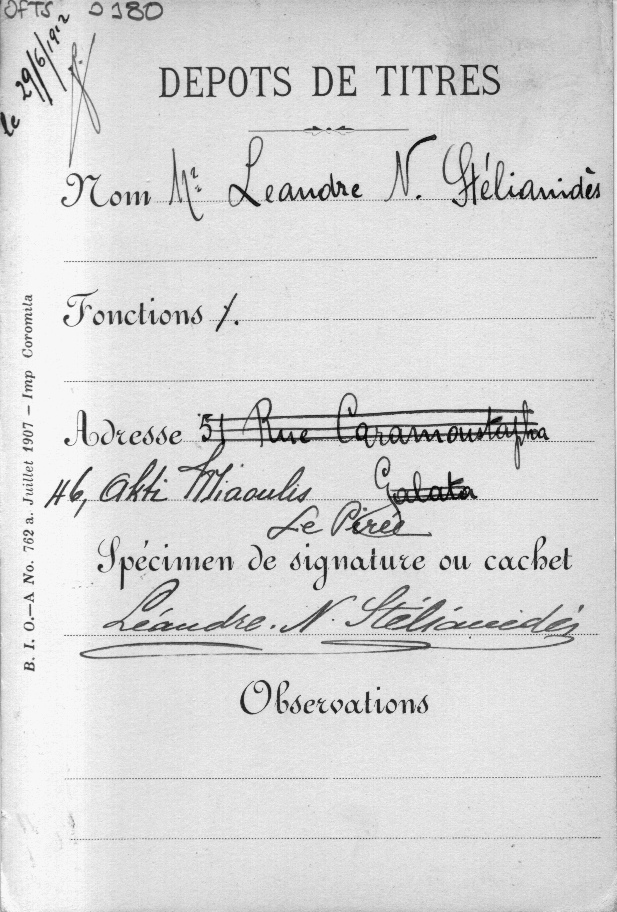 OFTS 0180
le 29/6/1912
DEPOTS DE TITRES
Nom Mr Leandre N. Stélianidès
Fonctions /.
Adresse 51 Rue Caramoustapha
Galata
46, Akti Miaoulis
Le Pirée
Spécimen de signature ou cachet
Léandre. N. Stélianidès
Observations
B. I. O.—A No. 762 a. Juillet 1907 — Imp Coromila